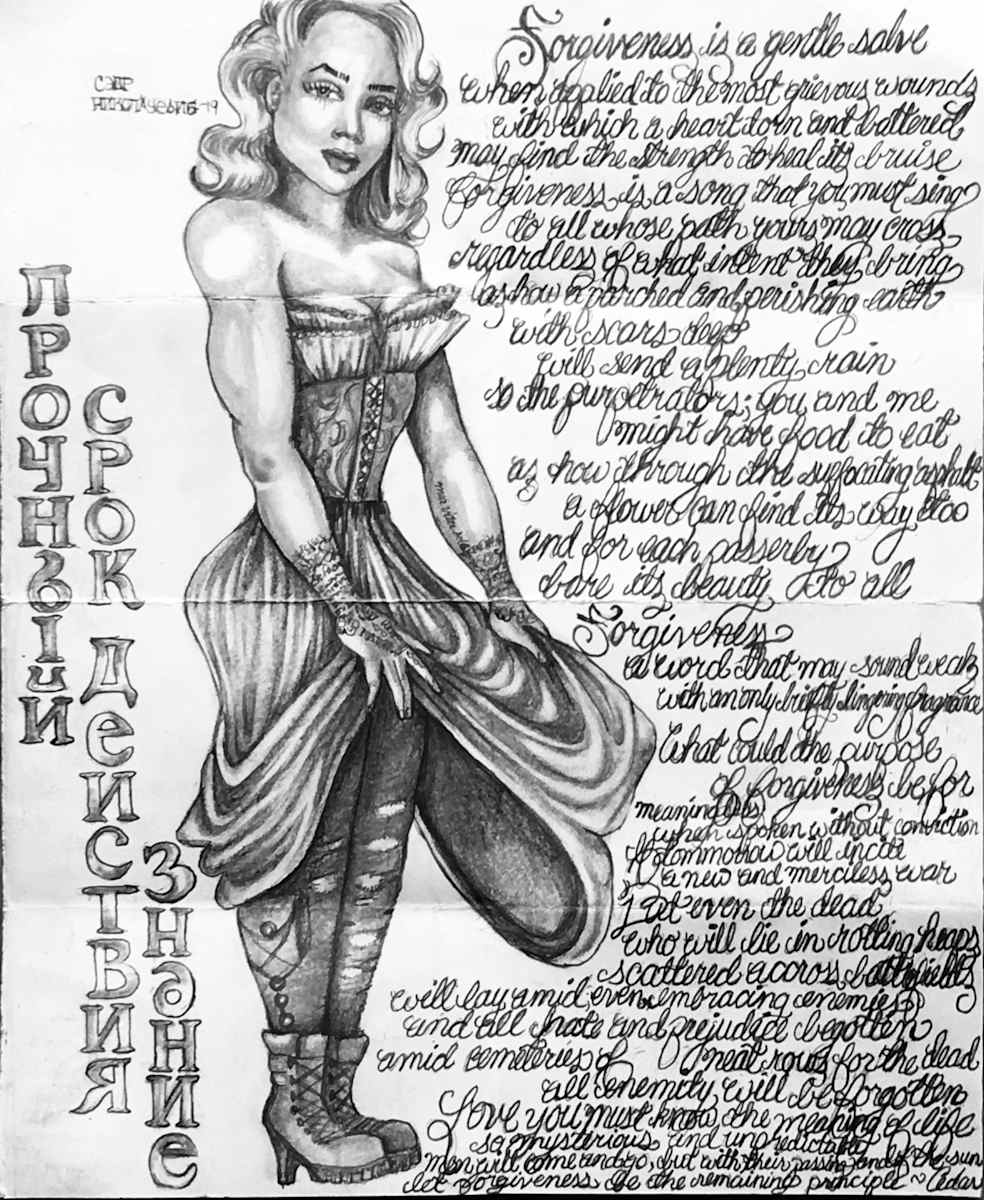 Forgiveness is a gentle salve
when applied to the most grievous wounds
with which a heart torn and battered
may find the strength to heal its bruise
Forgiveness is a song that you must sing
to all whose path yours may cross
regardless of what intent they bring
as how a parched and perishing earth
with scars deep
will send a plenty rain
so the purpetrators; you and me
might have food to eat
as how through the suffocating asphalt
a flower can find its way too
and for each passerby
bare its beauty to all
Forgiveness
a word that may sound weak
with an only briefly lingering fragrance
What could the purpose
of forgiveness be for
meaningless
when spoken without conviction
If tommorrow will incite
a new and merciless war
Yet even the dead
who will lie in rotting heaps
scattered accross battlefields
will lay amid even embracing enemies
and all hate and prejudice begotten
amid cemeteries of neat rows for the dead
all enemity will be forgotten
Love you must know the meaning of life
so mysterious and unpredictable
Men will come and go, but with their passing and of the sun
let forgiveness be the remaining principle ~ Cedar
СЭДР
-19
ПРОЧНЫЙ
СРОК ДЕИСТВИЯ
ЗНАНИЕ